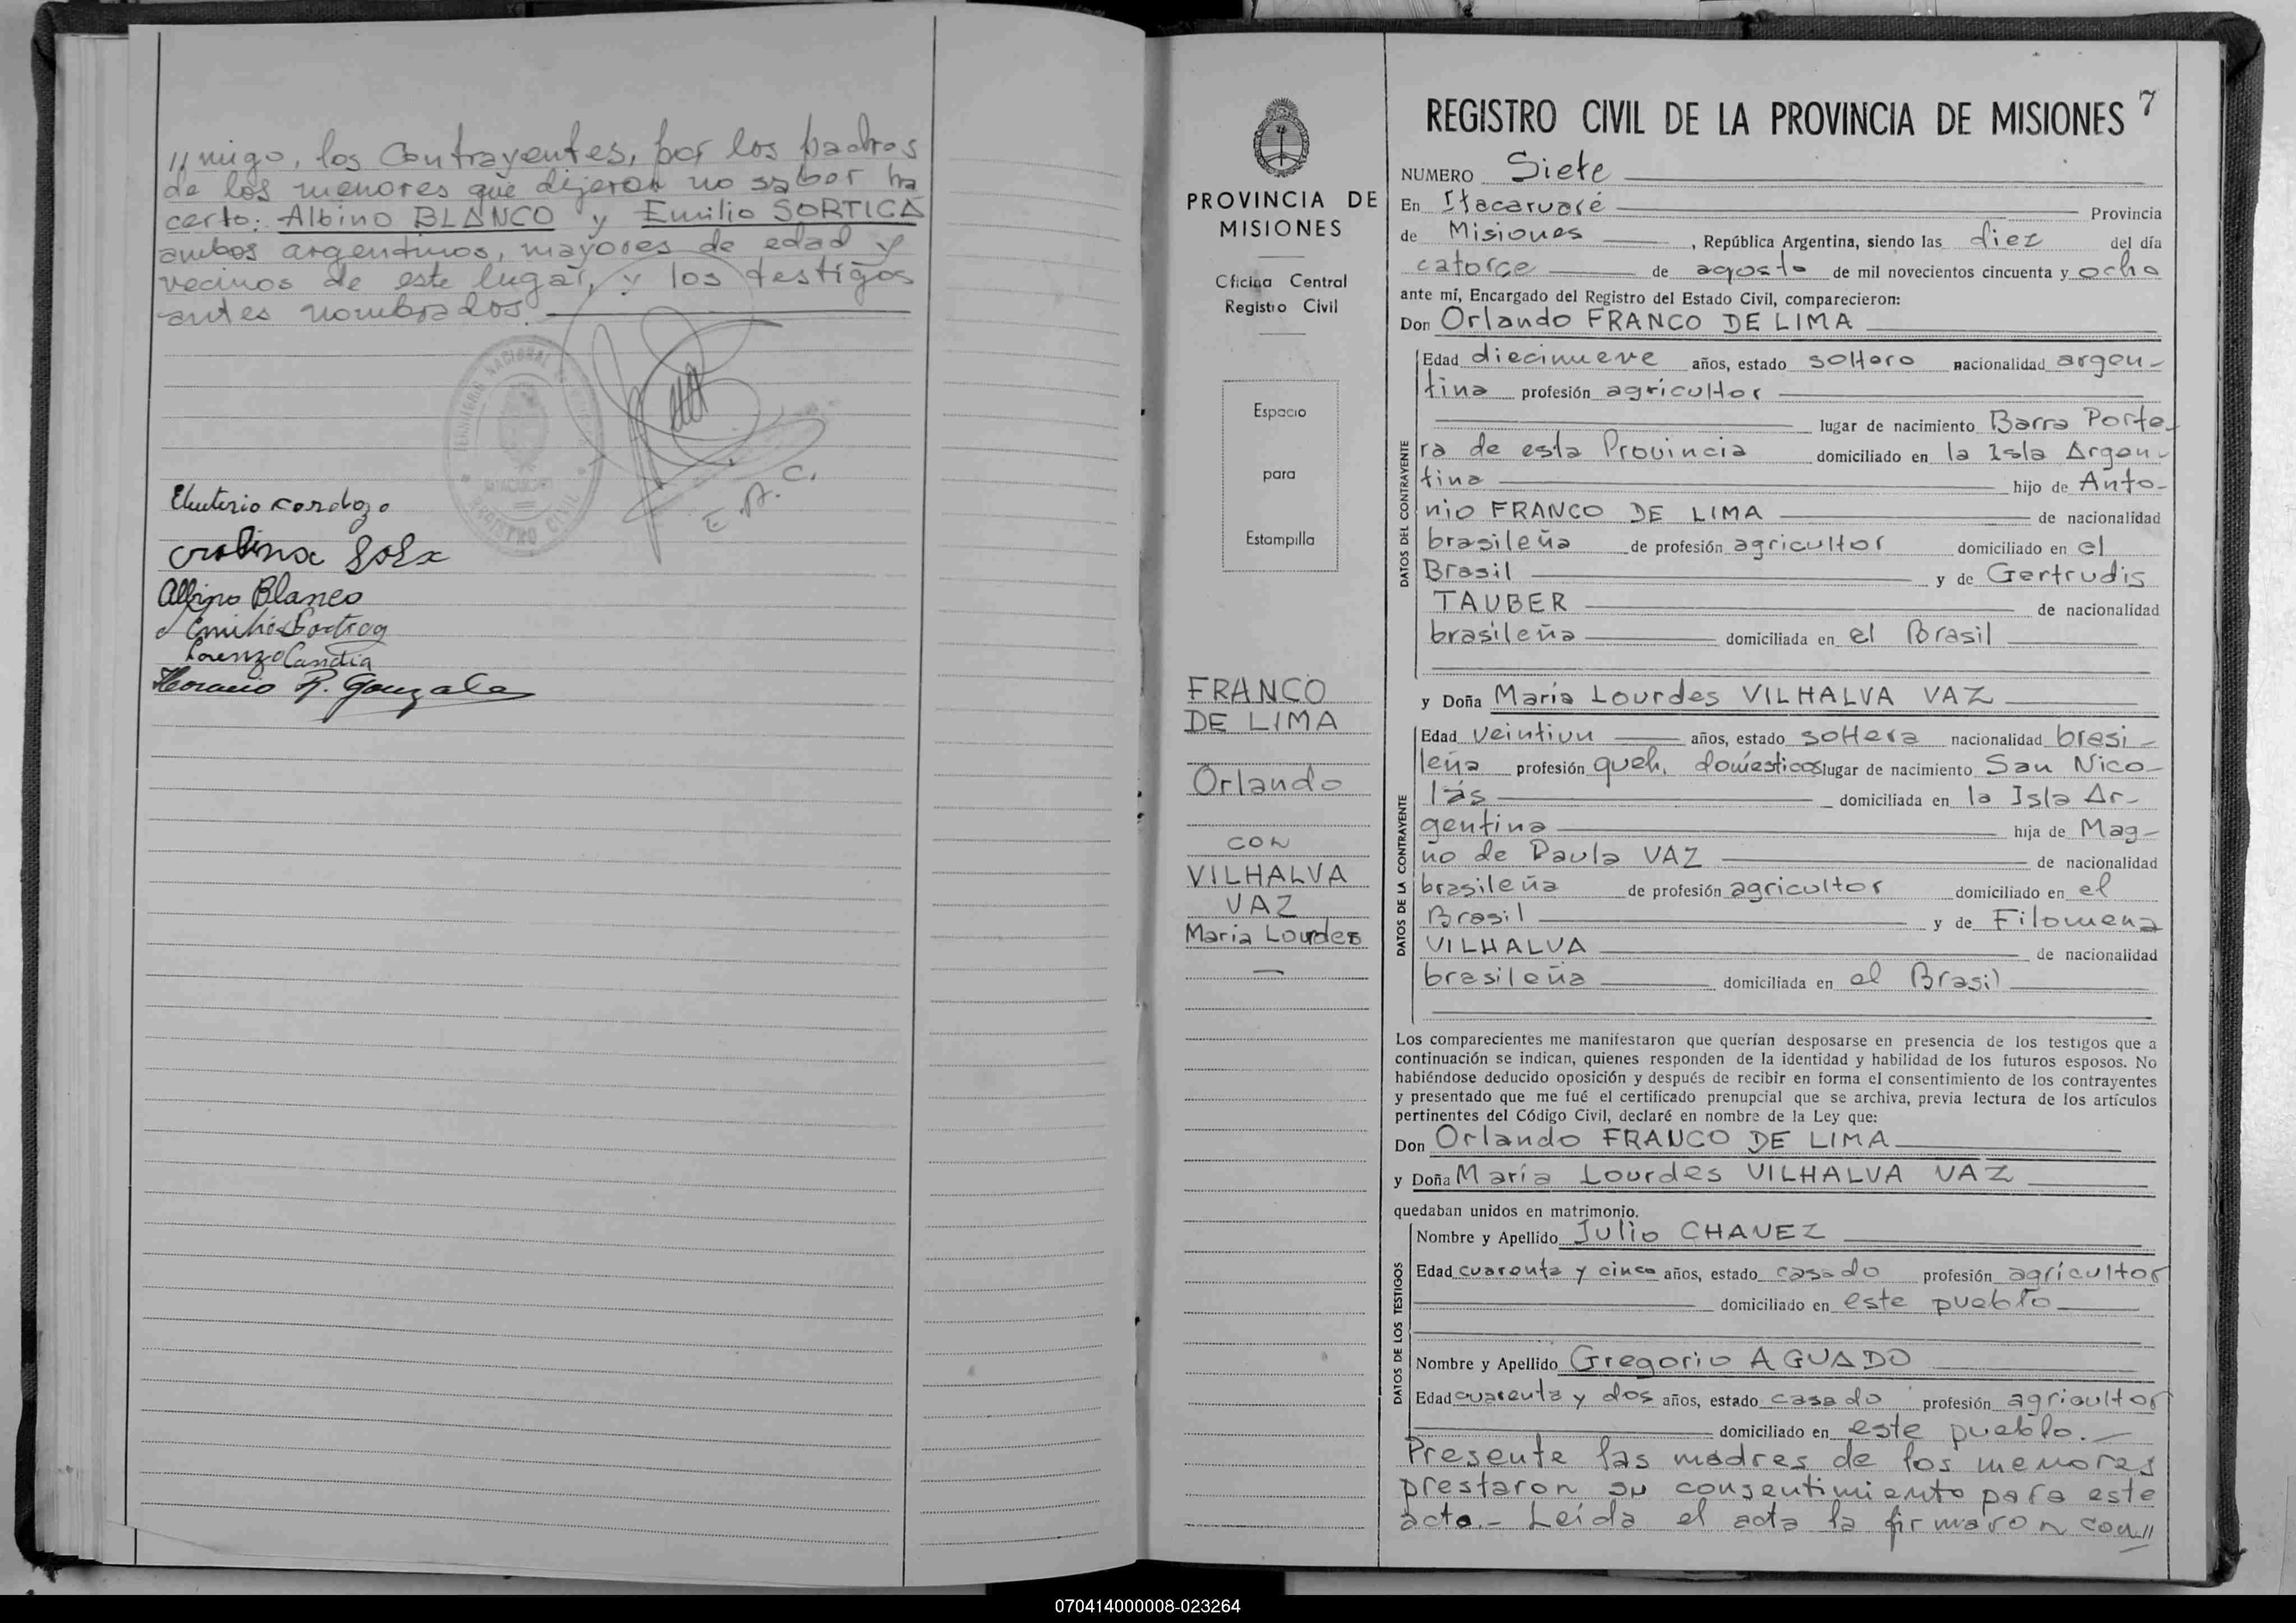 //migo, los Contrayentes, por los padres
de los menores que dijeron no saber ha
cerlo: Albino BLANCO y Emilio SORTICA
ambos argentinos, mayores de edad y
vecinos de este lugar, y los testigos
antes nombrados.
REGISTRO CIVIL
E. R. C.
Eleuterio Cordozo
Albino Blanco
Emilio Sortica
Lorenzo Candia
Horacio R. Gonzalez
PROVINCIA DE
MISIONES
Oficina Central
Registro Civil
Espacio
para
Estampilla
FRANCO
DE LIMA
Orlando
CON
VILHALVA
VAZ
Maria Lourdes
REGISTRO CIVIL DE LA PROVINCIA DE MISIONES 7
NUMERO Siete
En Itacaruaré Provincia
de Misiones , República Argentina, siendo las diez del día
catorce de agosto de mil novecientos cincuenta y ocho
ante mí, Encargado del Registro del Estado Civil, comparecieron:
Don Orlando FRANCO DE LIMA
DATOS DEL CONTRAYENTE
Edad diecinueve años, estado soltero nacionalidad argen-
tina profesión agricultor
lugar de nacimiento Barra Porte-
ra de esta Provincia domiciliado en la Isla Argen-
tina hijo de Anto-
nio FRANCO DE LIMA de nacionalidad
brasileña de profesión agricultor domiciliado en el
Brasil y de Gertrudis
TAUBER de nacionalidad
brasileña domiciliada en el Brasil
y Doña María Lourdes VILHALVA VAZ
DATOS DE LA CONTRAYENTE
Edad veintiun años, estado soltera nacionalidad brasi-
leña profesión queh. domésticos lugar de nacimiento San Nico-
lás domiciliada en la Isla Ar-
gentina hija de Mag-
no de Paula VAZ de nacionalidad
brasileña de profesión agricultor domiciliado en el
Brasil y de Filomena
VILHALVA de nacionalidad
brasileña domiciliada en el Brasil
Los comparecientes me manifestaron que querían desposarse en presencia de los testigos que a
continuación se indican, quienes responden de la identidad y habilidad de los futuros esposos. No
habiéndose deducido oposición y después de recibir en forma el consentimiento de los contrayentes
y presentado que me fué el certificado prenupcial que se archiva, previa lectura de los artículos
pertinentes del Código Civil, declaré en nombre de la Ley que:
Don Orlando FRANCO DE LIMA
y Doña María Lourdes VILHALVA VAZ
quedaban unidos en matrimonio.
DATOS DE LOS TESTIGOS
Nombre y Apellido Julio CHAVEZ
Edad cuarenta y cinco años, estado casado profesión agrícultor
domiciliado en este pueblo
Nombre y Apellido Gregorio AGUADO
Edad cuarenta y dos años, estado casado profesión agricultor
domiciliado en este pueblo.-
Presente las madres de los menores
prestaron su consentimiento para este
acto.- Leída el acta la firmaron con//
070414000008-023264